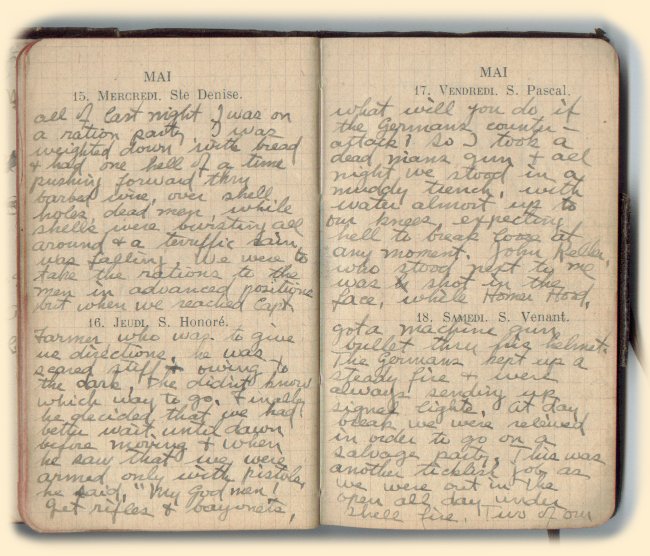 MAI
15. MERCREDI. Ste Denise.
all of last night I was on
a ration party, I was
weighted down with bread
& had one hell of a time
pushing forward thru
barbed wire, over shell
holes, dead men, while
shells were bursting all
around & a terrific rain
was falling. We were to
take the rations to the
men in advanced positions
but when we reached Capt
16. JEUDI. S. Honoré.
Farmer who was to give
us directions, he was
scared stiff & owing to
the dark, he didnt know
which way to go. Finally
he decided that we had
better wait until dawn
before moving & when
he saw that we were
armed only with pistols,
he said, "My God men!
Get rifles & bayonets,
MAI
17. VENDREDI. S. Pascal.
what will you do if
the Germans counter-
attack! So I took a
dead mans gun & all
night we stood in a
muddy trench, with
water almost up to
our knees expecting
hell to break loose at
any moment. John Keller,
who stood next to me
was shot in the
face, while Homer Hood,
18. SAMEDI. S. Venant.
got a machine gun
bullet thru his helmet.
The Germans kept up a
steady fire & were
always sending up
signal lights. At day
break we were relieved
in order to go on a
salvage party. This was
another ticklish job as
we were out in the
open all day under
shell fire. Two of our